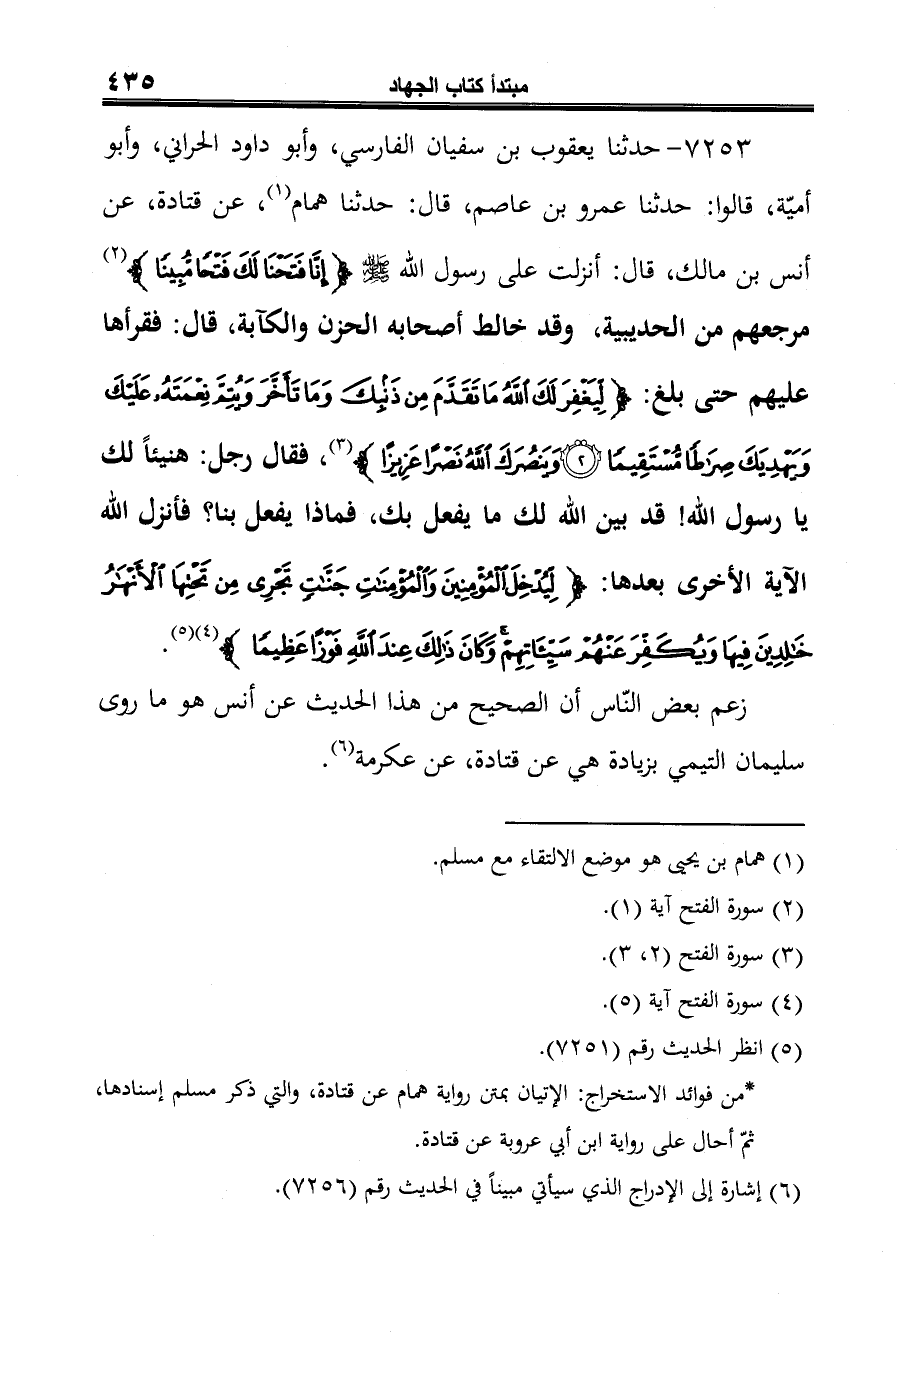 مبتدأ كتاب الجهاد ٤٣٥
٧٢٥٣- حدثنا يعقوب بن سفيان الفارسي، وأبو داود الحراني، وأبو
أميّة، قالوا: حدثنا عمرو بن عاصم، قال: حدثنا همام(١)، عن قتادة، عن
أنس بن مالك، قال: أنزلت على رسول الله ﷺ ﴿ إِنَّا فَتَحْنَا لَكَ فَتْحًا مُّبِينًا ﴾(٢)
مرجعهم من الحديبية، وقد خالط أصحابه الحزن والكآبة، قال: فقرأها
عليهم حتى بلغ: ﴿ لِّيَغْفِرَ لَكَ ٱللَّهُ مَا تَقَدَّمَ مِن ذَنۢبِكَ وَمَا تَأَخَّرَ وَيُتِمَّ نِعْمَتَهُۥ عَلَيْكَ
وَيَهْدِيَكَ صِرَٰطًا مُّسْتَقِيمًا ۝٢ وَيَنصُرَكَ ٱللَّهُ نَصْرًا عَزِيزًا ﴾(٣)، فقال رجل: هنيئاً لك
يا رسول الله! قد بين الله لك ما يفعل بك، فماذا يفعل بنا؟ فأنزل الله
الآية الأخرى بعدها: ﴿ لِّيُدْخِلَ ٱلْمُؤْمِنِينَ وَٱلْمُؤْمِنَٰتِ جَنَّٰتٍ تَجْرِى مِن تَحْتِهَا ٱلْأَنْهَٰرُ
خَٰلِدِينَ فِيهَا وَيُكَفِّرَ عَنْهُمْ سَيِّـَٔاتِهِمْ ۚ وَكَانَ ذَٰلِكَ عِندَ ٱللَّهِ فَوْزًا عَظِيمًا ﴾(٤)(٥).
زعم بعض النّاس أن الصحيح من هذا الحديث عن أنس هو ما روى
سليمان التيمي بزيادة هي عن قتادة، عن عكرمة(٦).
(١) همام بن يحيى هو موضع الالتقاء مع مسلم.
(٢) سورة الفتح آية (١).
(٣) سورة الفتح (٢، ٣).
(٤) سورة الفتح آية (٥).
(٥) انظر الحديث رقم (٧٢٥١).
*من فوائد الاستخراج: الإتيان بمتن رواية همام عن قتادة، والتي ذكر مسلم إسنادها،
ثمّ أحال على رواية ابن أبي عروبة عن قتادة.
(٦) إشارة إلى الإدراج الذي سيأتي مبيناً في الحديث رقم (٧٢٥٦).